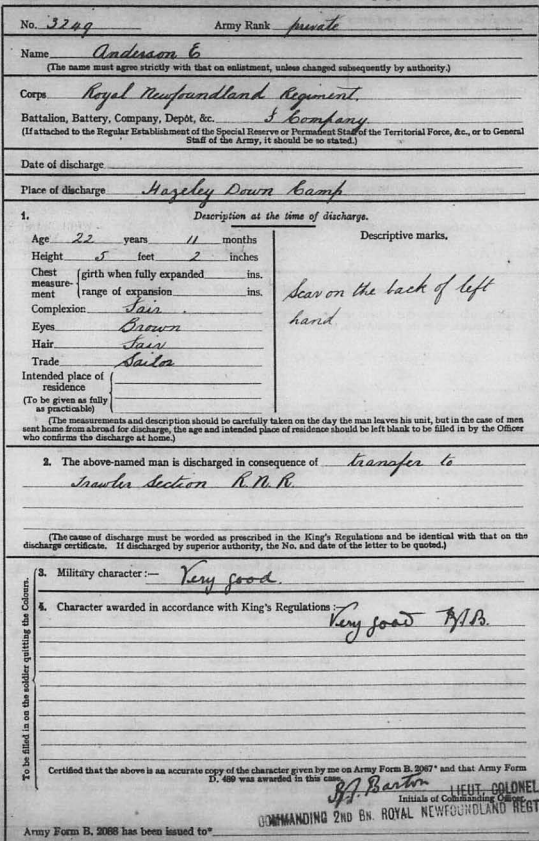 No. 3249 Army Rank private
Name Anderson E
(The name must agree strictly with that on enlistment, unless changed subsequently by authority.)
Corps Royal Newfoundland Regiment.
Battalion, Battery, Company, Depôt, &c. F Company
(If attached to the Regular Establishment of the Special Reserve or Permanent Staff of the Territorial Force, &c., or to General
Staff of the Army, it should be so stated.)
Date of discharge
Place of discharge Hazeley Down Camp
1. Description at the time of discharge.
Age 22 years 11 months
Height 5 feet 2 inches
Chest measure-ment { girth when fully expanded ins.
range of expansion ins.
Complexion Fair.
Eyes Brown
Hair Fair
Trade Sailor
Intended place of
residence
(To be given as fully
as practicable)
Descriptive marks.
Scar on the back of left
hand
(The measurements and description should be carefully taken on the day the man leaves his unit, but in the case of men
sent home from abroad for discharge, the age and intended place of residence should be left blank to be filled in by the Officer
who confirms the discharge at home.)
2. The above-named man is discharged in consequence of transfer to
Trawler Section R.N.R.
(The cause of discharge must be worded as prescribed in the King's Regulations and be identical with that on the
discharge certificate. If discharged by superior authority, the No. and date of the letter to be quoted.)
To be filled in on the soldier quitting the Colours.
3. Military character :— Very good.
4. Character awarded in accordance with King's Regulations :— Very good
Certified that the above is an accurate copy of the character given by me on Army Form B. 2067* and that Army Form
D. 489 was awarded in this case.
Barton LIEUT. COLONEL
Initials of Commanding Officer.
COMMANDING 2ND BN. ROYAL NEWFOUNDLAND REGT
Army Form B. 2088 has been issued to*